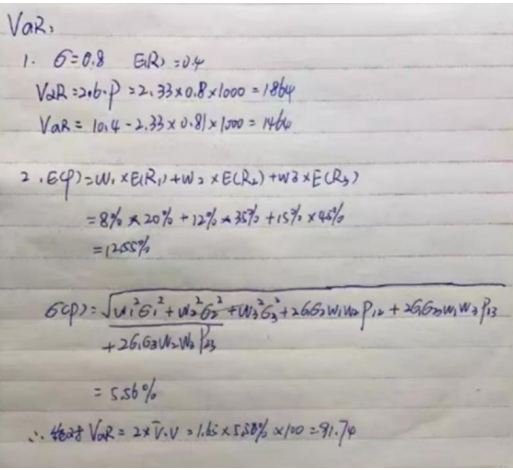 VaR:
1. σ=0.8 E(R)=0.4
VaR=zασ·P=2.33×0.8×1000=1864
VaR=|0.4-2.33×0.8|×1000=1464
2. E(P)=W₁×E(R₁)+W₂×E(R₂)+W3×E(R₃)
=8%×20%+12%×35%+15%×45%
=12.55%
σ(P)=√W₁²σ₁²+W₂²σ₂²+W₃²σ₃²+2σ₁σ₂W₁W₂ρ₁₂+2σ₁σ₃W₁W₃ρ₁₃
+2σ₁σ₃W₂W₃ρ₂₃
=5.56%
∴绝对VaR=2×σ·V=1.65×5.56%×100=91.74